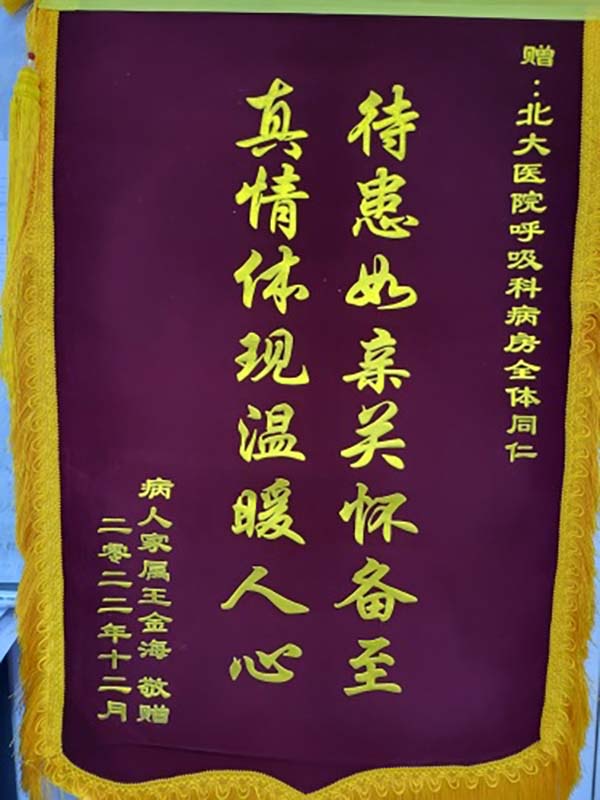 赠：北大医院呼吸科病房全体同仁
待患如亲关怀备至
真情体现温暖人心
病人家属王金海 敬赠
二零二二年十二月